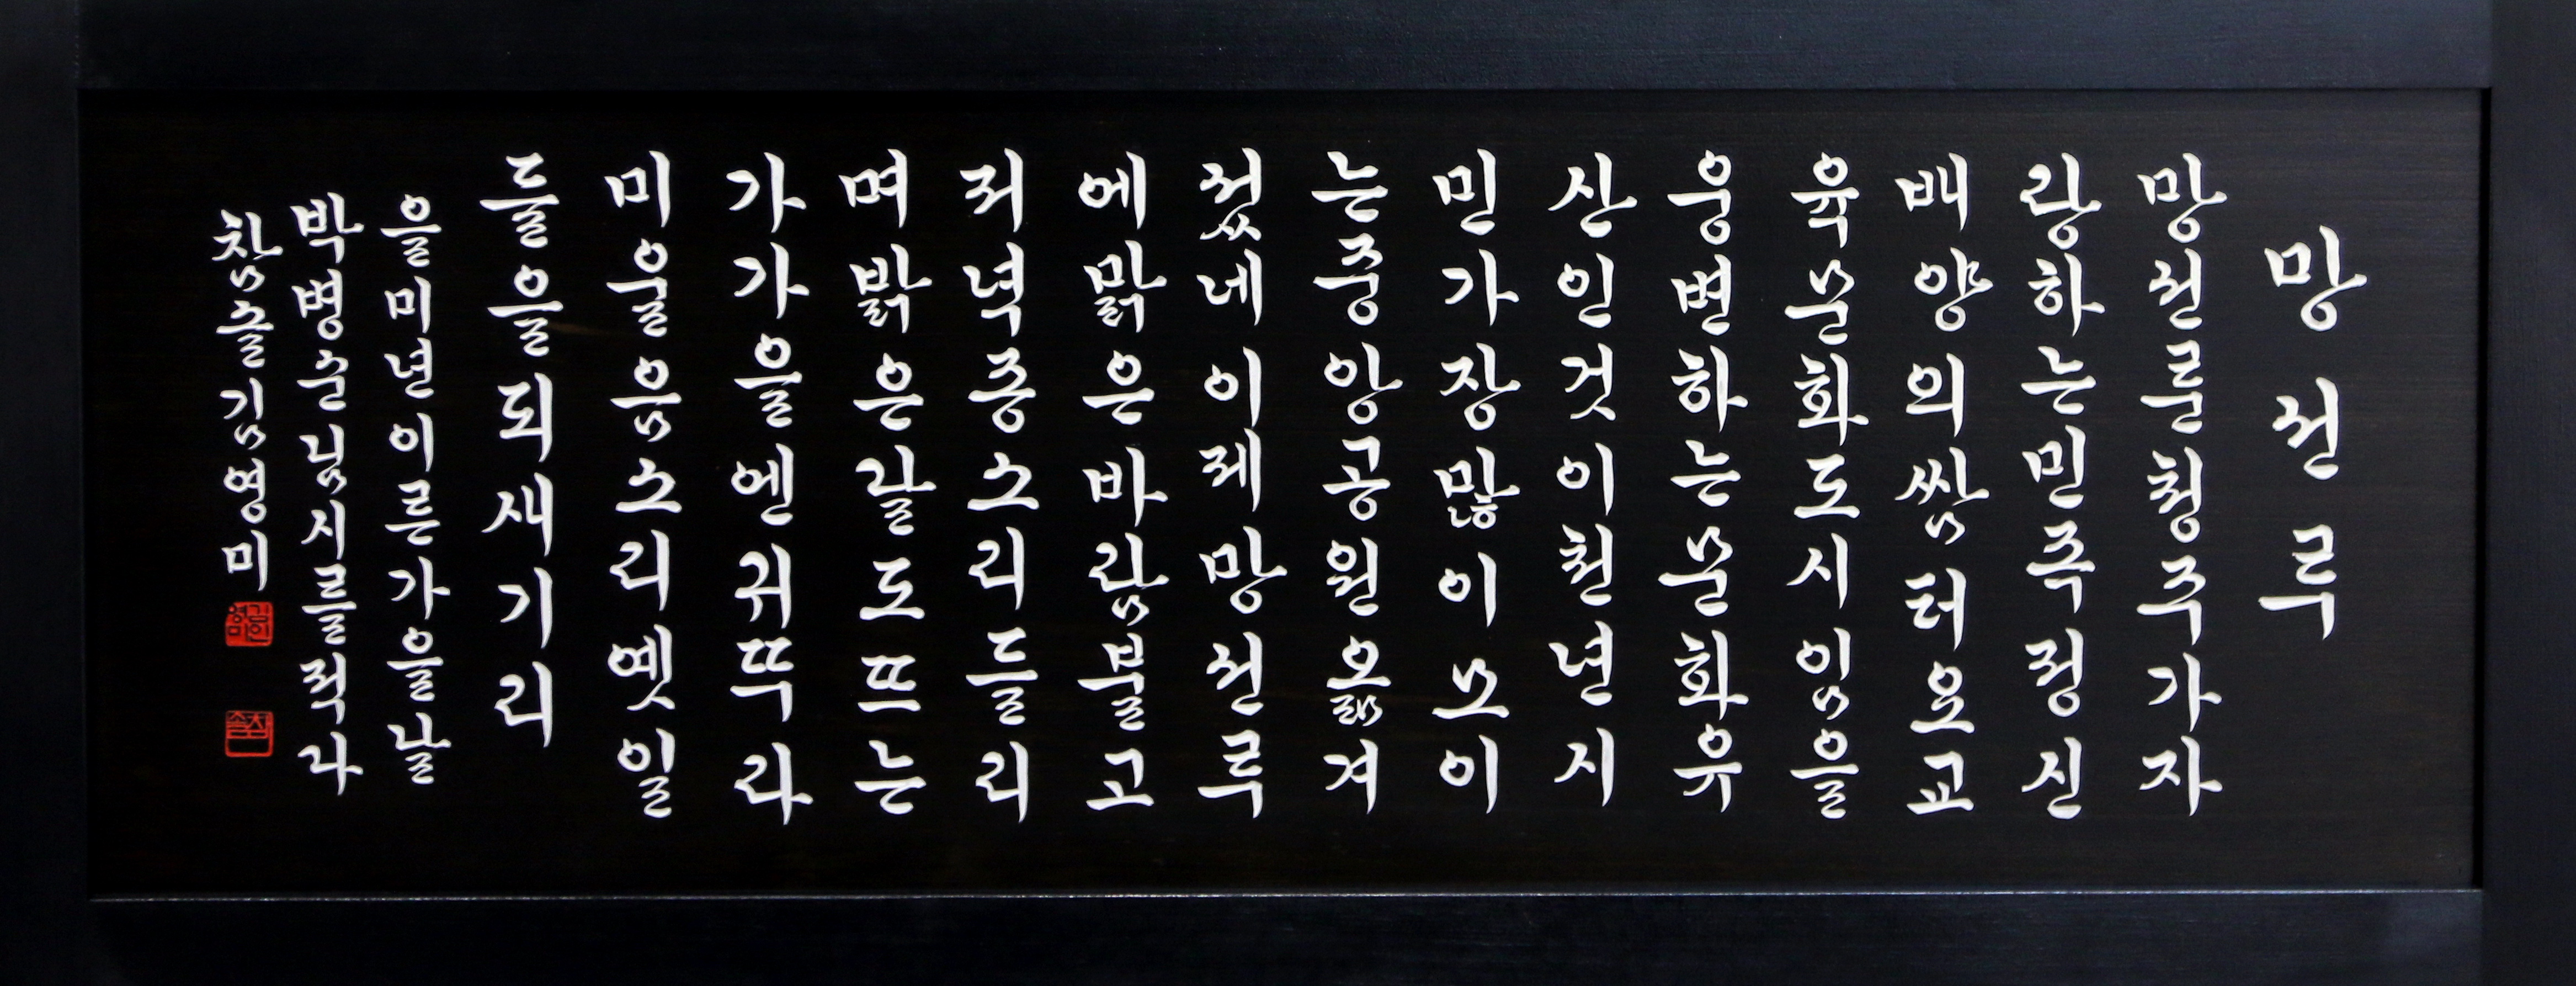 망선루
망선룬청주가자
랑하는민족정신
배양의쌈터요교
육문화도시임을
웅변하는문화유
산인것이천년시
민가장많이보이
는중앙공원옮겨
섰네이제망선루
에맑은바람불고
저녁종소리들리
며밝은달도뜨는
가가을엔귀뚜라
미울음소리옛일
들을되새기리
을미년이른가을날
박병순님시를적다
참솔김영미
김영미
참솔